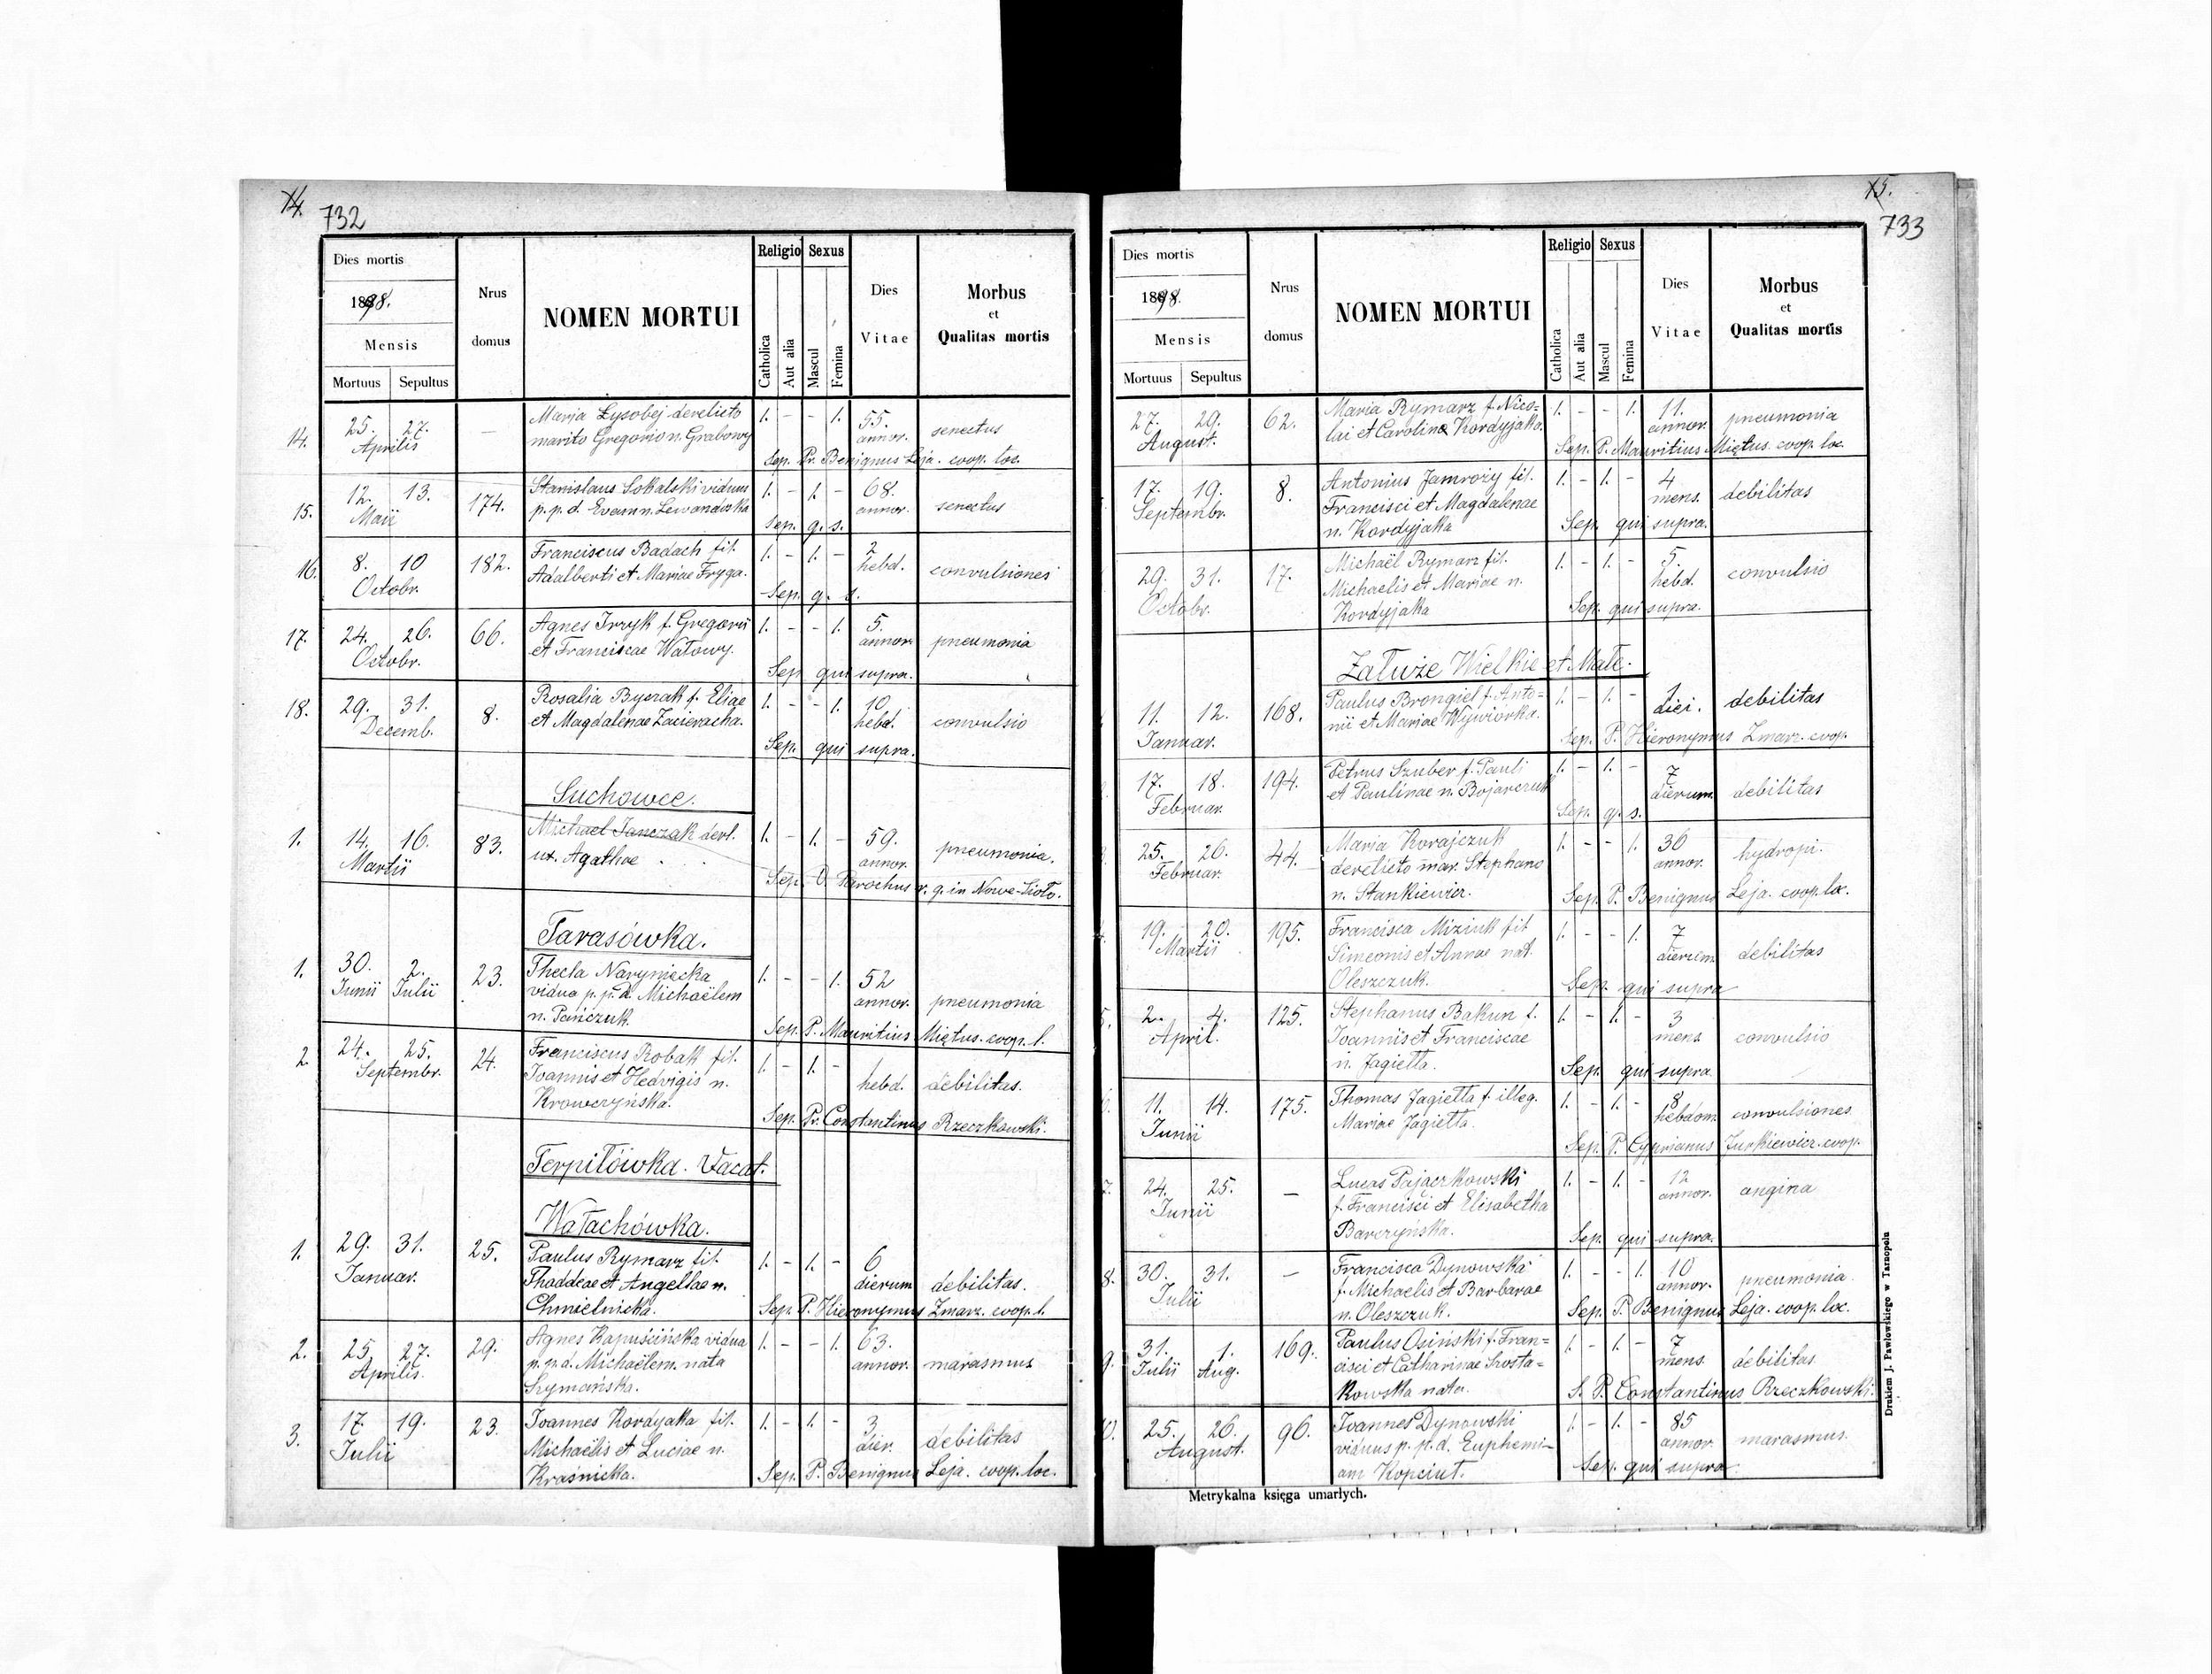 14.
732
Dies mortis
1898.
Mensis
Mortuus Sepultus
Nrus domus
NOMEN MORTUI
Religio
Catholica
Aut alia
Sexus
Mascul
Femina
Dies Vitae
Morbus
et
Qualitas mortis
14. 25. 27. — Maria Łysobej derelicto 1. - - 1. 55. senectus
Aprilis marito Gregorio n. Grabowy annor.
Sep. Pr. Benignus Leja. coop. loc.
15. 12. 13. 174. Stanislaus Sokalski viduus 1. - 1. - 68. senectus
Maii p. p. d. Evam n. Lewandowska annor.
Sep. q. s.
16. 8. 10 182. Franciscus Badach fil. 1. - 1. - 2 convulsiones
Octobr. Adalberti et Mariae Fryga. hebd.
Sep. q. s.
17. 24. 26. 66. Agnes Irzyk f. Gregorii 1. - - 1. 5. pneumonia
Octobr. et Franciscae Watowy. annor.
Sep. qui supra.
18. 29. 31. 8. Rosalia Byczak f. Eliae 1. - - 1. 10 convulsio
Decemb. et Magdalenae Zacieracha. hebd.
Sep. qui supra.
Suchowce.
1. 14. 16. 83. Michael Janczak derl. 1. - 1. - 59. pneumonia.
Martii ux. Agathae annor.
Sep. Parochus r. g. in Nowe-Sioło.
Tarasówka.
1. 30. 2. 23. Thecla Naryniecka 1. - - 1. 52
Junii Julii vidua p. p. d. Michaëlem annor. pneumonia
n. Pańczuk.
Sep. P. Mauritius Miętus. coop. l.
2. 24. 25. 24. Franciscus Robak fil. 1. - 1. -
Septembr. Joannis et Hedvigis n. hebd. debilitas.
Krowczyńska.
Sep. Pr. Constantinus Rzeczkowski.
Terpiłówka. Vacat.
Wałachówka.
1. 29. 31. 25. Paulus Rymarz fil. 1. - 1. - 6
Januar. Thaddeae et Angellae n. dierum debilitas.
Chmielnicka.
Sep. P. Hieronymus Zmarz. coop. l.
2. 25. 27. 29. Agnes Kapuścińska vidua 1. - - 1. 63.
Aprilis. p. p. d. Michaëlem nata annor. marasmus
Szymańska.
3. 17 19. 23. Joannes Kordyjaka fil. 1. - 1. - 3
Julii Michaëlis et Luciae n. dier. debilitas
Kraśnicka.
Sep. P. Benignus Leja. coop. loc.
15.
733
Dies mortis
1898.
Mensis
Mortuus Sepultus
Nrus domus
NOMEN MORTUI
Religio
Catholica
Aut alia
Sexus
Mascul
Femina
Dies Vitae
Morbus
et
Qualitas mortis
27. 29. 62. Maria Rymarz f. Nico= 1. - - 1. 11. pneumonia
August. lai et Carolina Kordyjaka. annor.
Sep. P. Mauritius Miętus. coop. loc.
17. 19. 8. Antonius Jamroży fil. 1. - 1. - 4 debilitas
Septembr. Francisci et Magdalenae mens.
n. Kordyjaka Sep. qui supra.
29. 31. 17. Michaël Rymarz fil. 1. - 1. - 5. convulsio
Octobr. Michaelis et Mariae n. hebd.
Kordyjaka Sep. qui supra.
Załuże Wielkie et Małe.
11. 12. 168. Paulus Brongiel f. Anto= 1. - 1. - 1 debilitas
Januar. nii et Mariae Wywiórka. diei.
Sep. P. Hieronymus Zmarz. coop.
17. 18. 194. Petrus Szuber f. Pauli 1. - 1. - 7 debilitas
Februar. et Paulinae n. Bojarczuk dierum.
Sep. q. s.
25. 26. 44. Maria Korajczuk 1. - - 1. 30 hydropi.
Februar. derelicto mar. Stephano annor.
n. Stankiewicz. Sep. P. Benignus Leja. coop. loc.
19. 20. 195. Francisca Miziuk fil 1. - - 1. 7 debilitas
Martii Simeonis et Annae nat. dierum
Oleszczuk. Sep. qui supra
5. 2. 4. 125. Stephanus Bakun f. 1. - 1. - 3 convulsio
April. Joannis et Franciscae mens
n. Jagiełła. Sep. qui supra.
11. 14. 175. Thomas Jagiełła f. illeg. 1. - 1. - 8 convulsiones
Junii Mariae Jagiełła. hebdom.
Sep. P. Cyprianus Jurkiewicz. coop.
7. 24. 25. — Lucas Pajaczkowski 1. - 1. - 12 angina
Junii f. Francisci et Elisabetha annor.
Barczyńska. Sep. qui supra.
8. 30. 31. — Francisca Dynowska 1. - - 1. 10 pneumonia.
Julii f. Michaelis et Barbarae annor.
n. Oleszczuk. Sep. P. Benignus Leja. coop. loc.
9. 31. 1. 169. Paulus Osiński f. Fran= 1. - 1. - 7 debilitas
Julii Aug. cisci et Catharinae Szosta= mens.
kowska nata. S. P. Constantinus Rzeczkowski.
25. 26. 96. Joannes Dynowski 1. - 1. - 85 marasmus.
August. viduus p. p. d. Euphemi- annor.
am Kopciut. Sep. qui supra.
Metrykalna księga umarłych.
Drukiem J. Pawłowskiego w Tarnopolu